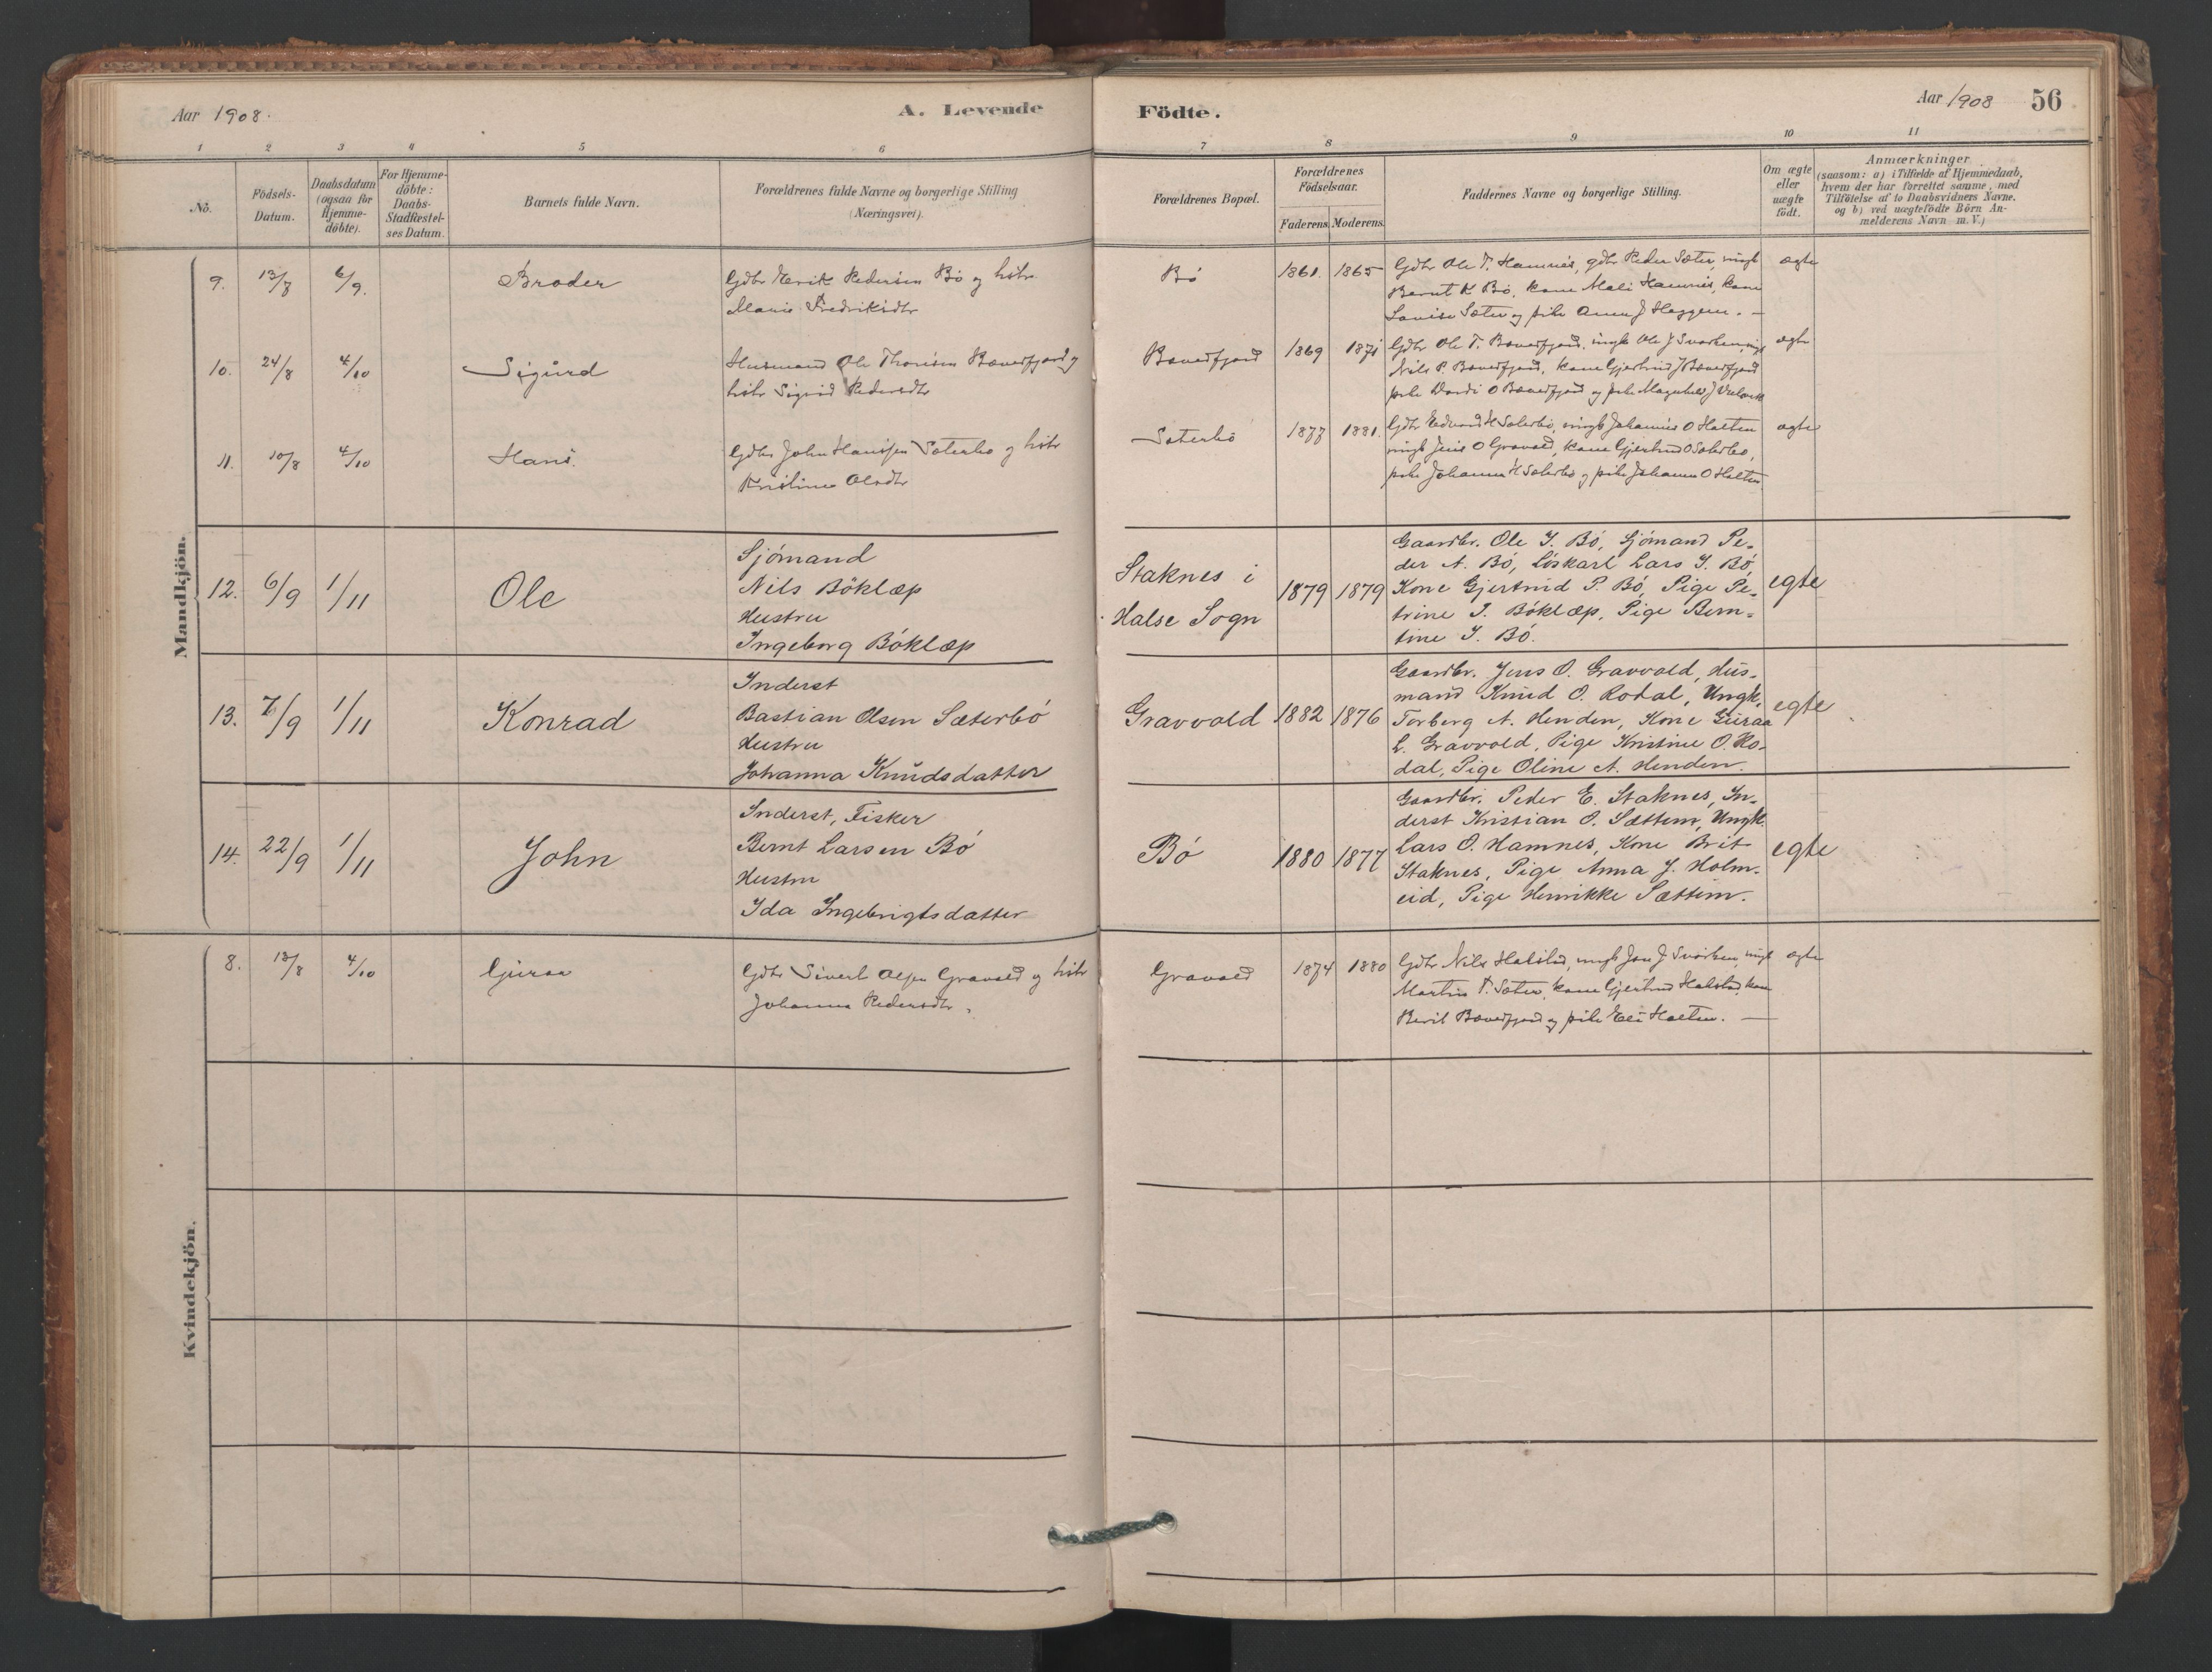 Aar 1908.
A. Levende
Födte.
Aar 1908
56
1 2 3 4 5 6 7 8 9 10 11
No.
Födsels-
Datum.
Daabsdatum
(ogsaa for
Hjemme-
döbte).
For Hjemme-
döbte:
Daabs-
Stadfæstel-
ses Datum.
Barnets fulde Navn.
Forældrenes fulde Navne og borgerlige Stilling
(Næringsvei).
Forældrenes Bopæl.
Forældrenes
Födselsaar.
Faderens. Moderens.
Faddernes Navne og borgerlige Stilling.
Om ægte
eller
uægte
födt.
Anmærkninger
(saasom: a) i Tilfælde af Hjemmedaab,
hvem der har forrettet samme, med
Tilföielse af to Daabsvidners Navne.
og b) ved uægtefödte Börn An-
melderens Navn m. V.)
Mandkjön.
9. 13/7 6/9. Broder
Gdbr Erik Pedersen Bö og hstr
Marie Fredriksdtr
Bö 1861. 1865
Gdbr Ole T. Hamnes, gdbr Peder Sæter, ungk
Bernt K Bö, kone Mali Hamnes, kone
Lovise Sæter og pike Anna J Heggem. —
ægte
10. 24/8 4/10 Sigurd
Husmand Ole Thoresen Bæverfjord og
hstr Sigrid Pedersdtr
Bæverfjord 1869 1871
Gdbr Ole T. Bæverfjord, ungk Ole J Svorken, ungk
Nils P. Bæverfjord, kone Gjertrud J Bæverfjord
pike Dordi O Bæverfjord og pike Magnhild J
ægte
11. 10/8 4/10 Hans.
Gdbr John Hanssen Sæterbø og hstr
Kristine Olsdtr
Sæterbö 1877 1881.
Gdbr Edvard H Sæterbö, ungk Johannes O Halten
ungk Jens O Gravold, kone Gjertrud O Sæterbø,
pike Johanna H Sæterbö og pike Johanna O Halten
ægte
12. 6/9 1/11 Ole
Sjömand
Nils Böklæp
Hustru
Ingeborg Böklæp
Staknes i
Halse Sogn
1879 1879
Gaardbr. Ole I. Bö, Sjömand Pe-
der A. Bö, Löskarl Lars I. Bö,
Kone Gjertrud P. Bö, Pige Pe-
trine I. Böklæp, Pige Bern-
tine I. Bö.
egte
13. 7/9 1/11 Konrad
Inderst
Bastian Olsen Sæterbö
Hustru
Johanna Knudsdatter
Gravvold 1882 1876
Gaardbr. Jens O. Gravvold, Hus-
mand Knud O. Rodal, Ungk.
Torberg A. Henden, Kone Guraa
L. Gravvold, Pige Kristine O. Ro-
dal, Pige Oline A. Henden.
egte
14. 22/9 1/11 John
Inderst, Fisker
Bernt Larsen Bö
Hustru
Ida Ingebrigtsdatter
Bö 1880 1877
Gaardbr. Peder E. Staknes, In-
derst Kristian O. Sættem, Ungk.
Lars O. Hamnes, Kone Brit
Staknes, Pige Anna J. Holm-
eid, Pige Henrikke Sættem.
egte
Kvindekjön.
8. 13/8 4/10 Guraa
Gdbr Sivert Olsen Gravold og hstr
Johanna Pedersdtr.
Gravold 1874 1880
Gdbr Nils Halstad, ungk Jon J Svorken, ungk
Martin T. Sæter, kone Gjertrud Halstad, kone
Berit Bæverfjord og pike Eli Halten. —
ægte